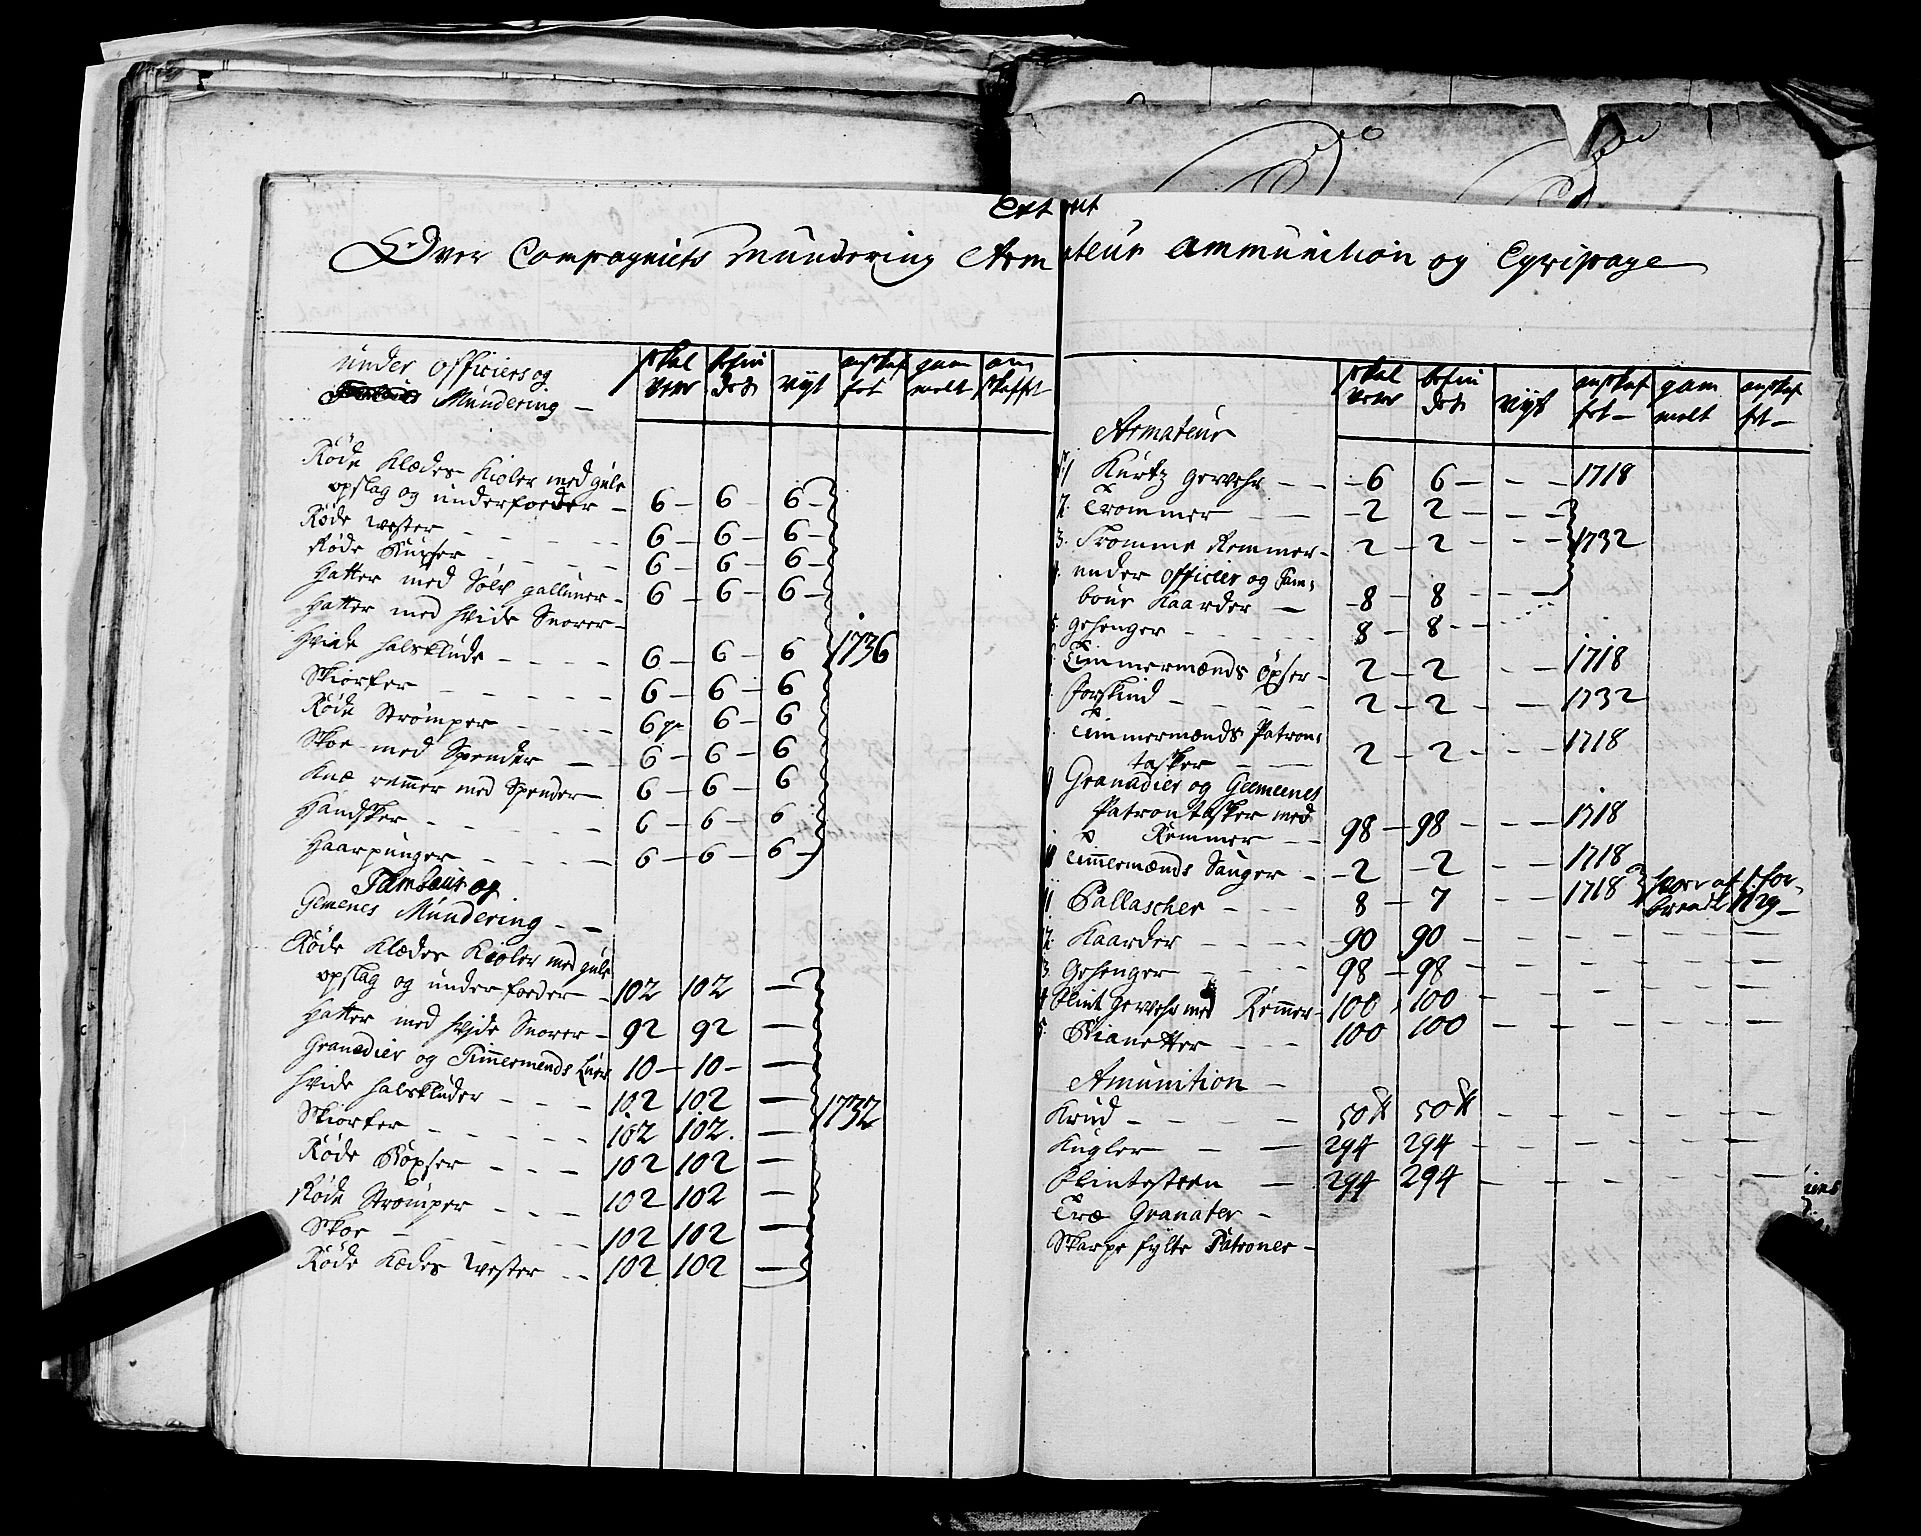 Extract
Over Compagniets Mundering Armateur ammunition og Eqvipage
under officiers og
Mundering —
skal være
befindes
nyt
anskaffet
gammelt
anskaffet
Røde Klædes Kioler med gule
opslag og underfoeder — 6 — 6 — 6 —
Røde Wester — 6 — 6 — 6 —
Røde Buxser — 6 — 6 — 6 —
Hatter med Sølv galluner — 6 — 6 — 6 —
Hatter med hvide Snorer —
Hvide halsklude — 6 — 6 — 6 1736
Skiorter — 6 — 6 — 6
Røde Strømper — 6 pr 6 — 6
Skoe med Spender — 6 — 6 — 6
Knæ remmer med Spender — 6 — 6 — 6
Handsker — 6 — 6 — 6
Haarpunger — 6 — 6 — 6 —
Tambour og
Gemenes Mundering —
Røde Klædes Kioler med gule
opslag og underfoeder — 102 102 —
Hatter med hvide Snorer — 92 92 —
Granadier og Timmermends Luer 10 — 10 — —
Hvide halskluder — 102 102 — 1732
Skiorter — 102 102. —
Røde Böxser — 102 102 —
Røde Strømper — 102 102 —
Skoe — 102 102 —
Røde Kædes Wester — 102 102 —
Armateur
skal være
befindes
nyt
anskaffet —
gammelt
anskaffet —
1 Kurtz gewehr — 6 6 — — 1718
2. Trommer — 2 2 — —
3. Tromme Remmer — 2 — 2 — — 1732
4. under officier og Tam=
bour Kaarder — 8 — 8 — —
5. gehenger — 8 — 8 —
Timmermænds Öxser — 2 — 2 — 1718
Forskind — 2 — 2 — 1732
Timmermænds Patron=
tasker — 2 — 2 — — 1718
9 Granadier og Gemeenes
Patrontasker med
Remmer — 98 — 98 — — 1718
10 Timmermænds Sauger — 2 — 2 — — 1718
11 Pallascher — 8 — 7 — — 1718 hvor af 1 for=
brendt 1729 —
12. Kaarder — 90 90 —
13. Gehenger — 98 — 98 —
14 Flint gewehr med Remmer — 100 100 —
15. Bianetter — 100 100 —
Amunition —
Krud — 50 ℔ 50 ℔ —
Kugler — 294 294 —
Flintesteen — 294 294 —
Træ Granater —
Skarpe fylte Patroner —